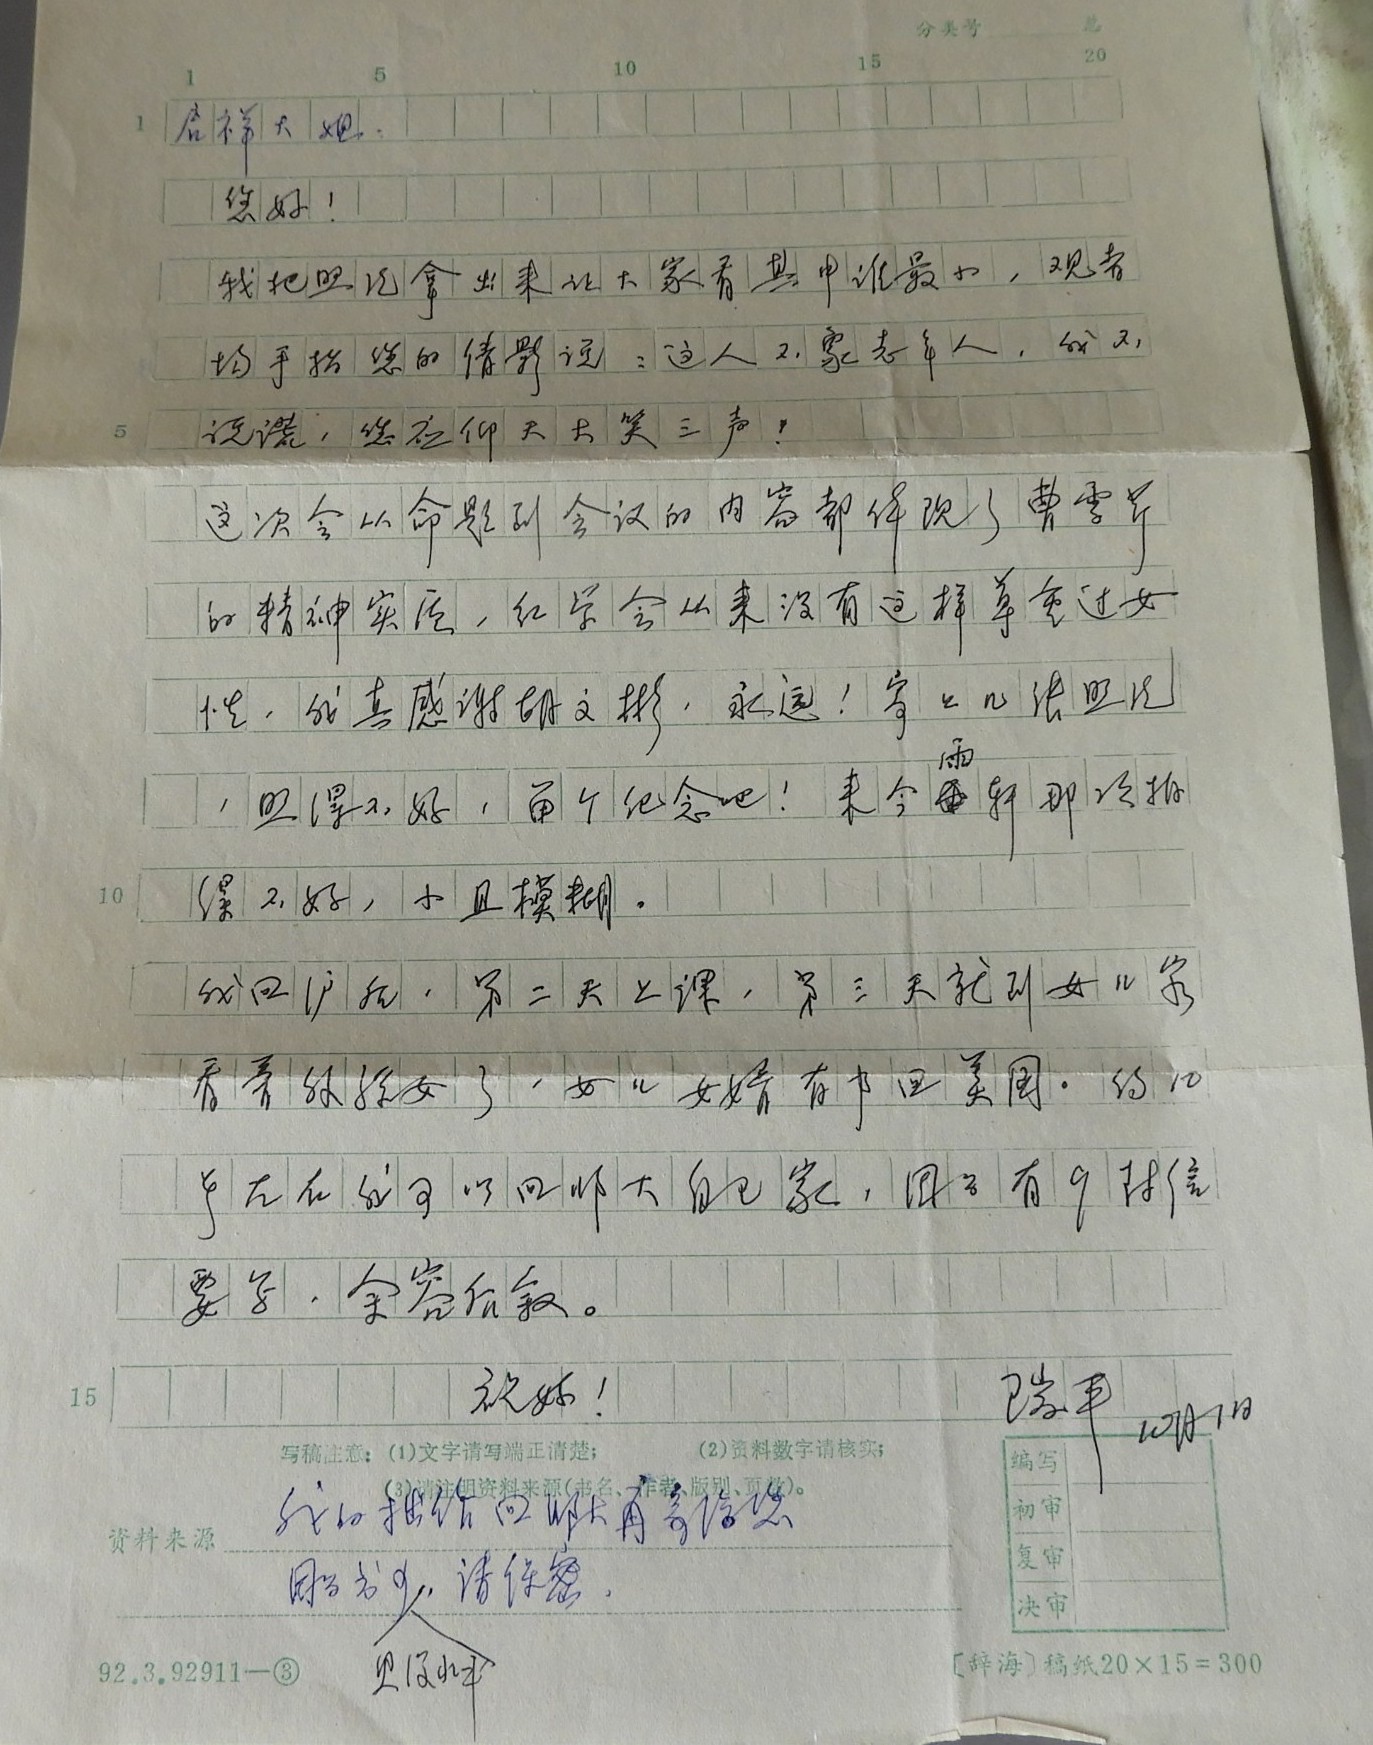 分类号 总
1 5 10 15 20
1 启祥大姐：
您好！
我把照片拿出来让大家看其中谁最小，观者
均手指您的倩影说：这人不象老年人，我不
5 说谎，您应仰天大笑三声！
这次会从命题到会议的内容都体现了曹雪芹
的精神实质，红学会从来没有这样尊重过女
性，我真感谢胡文彬，永远！寄上几张照片
，照得不好，留个纪念吧！来今雨轩那顷拍
10 得不好，小且模糊。
我回沪后，第二天上课，第三天就到女儿家
看着外孙女了，女儿女婿有事回美国。约10
号左右我可以回师大自己家，因为有9封信
要写，余容后叙。
15 祝好！ 瑞平 10月7日
写稿注意：(1)文字请写端正清楚； (2)资料数字请核实；
(3)请注明资料来源(书名、作者、版别、页数)。
编写
初审
复审
决审
资料来源 我的拙作回师大再寄给您
因为书少，请保密，
人
见没水平
92.3.92911—③ [辞海]稿纸20×15=300